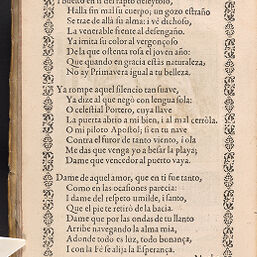 Halla sin mal su cuerpo; un gozo estraño
Se trae de allà su alma: i vè dichoso,
La venerable frente al desengaño.
Ya imita su color al vergonçoso
De la que ostenta rosa el joven año:
Que quando en gracia estàs naturaleza,
No ay Primavera igual a tu belleza.
Ya rompe aquel silencio tan suave,
Ya dize al que negò con lengua sola:
O celestial Portero, cuya llave
La puerta abrio a mi bien, i al mal cerròla.
O mi piloto Apostol; si en tu nave
Contra el furor de tanto viento, i ola
Me das que venga yo a besar la playa;
Dame que vencedor al puerto vaya.
Dame de aquel amor, que en ti fue tanto,
Como en las ocasiones parecia:
I dame del respeto umilde, i santo,
Que el pie te retirò de la bacia.
Dame que por las ondas de tu llanto
Arribe navegando la alma mia,
Adonde todo es luz, todo bonança,
I con la Fè se alija la Esperança.